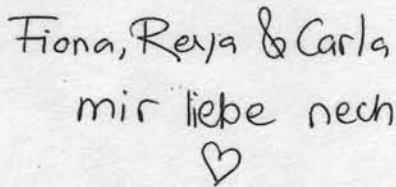 Fiona, Rexja & Carla
mir liebe nech
♡